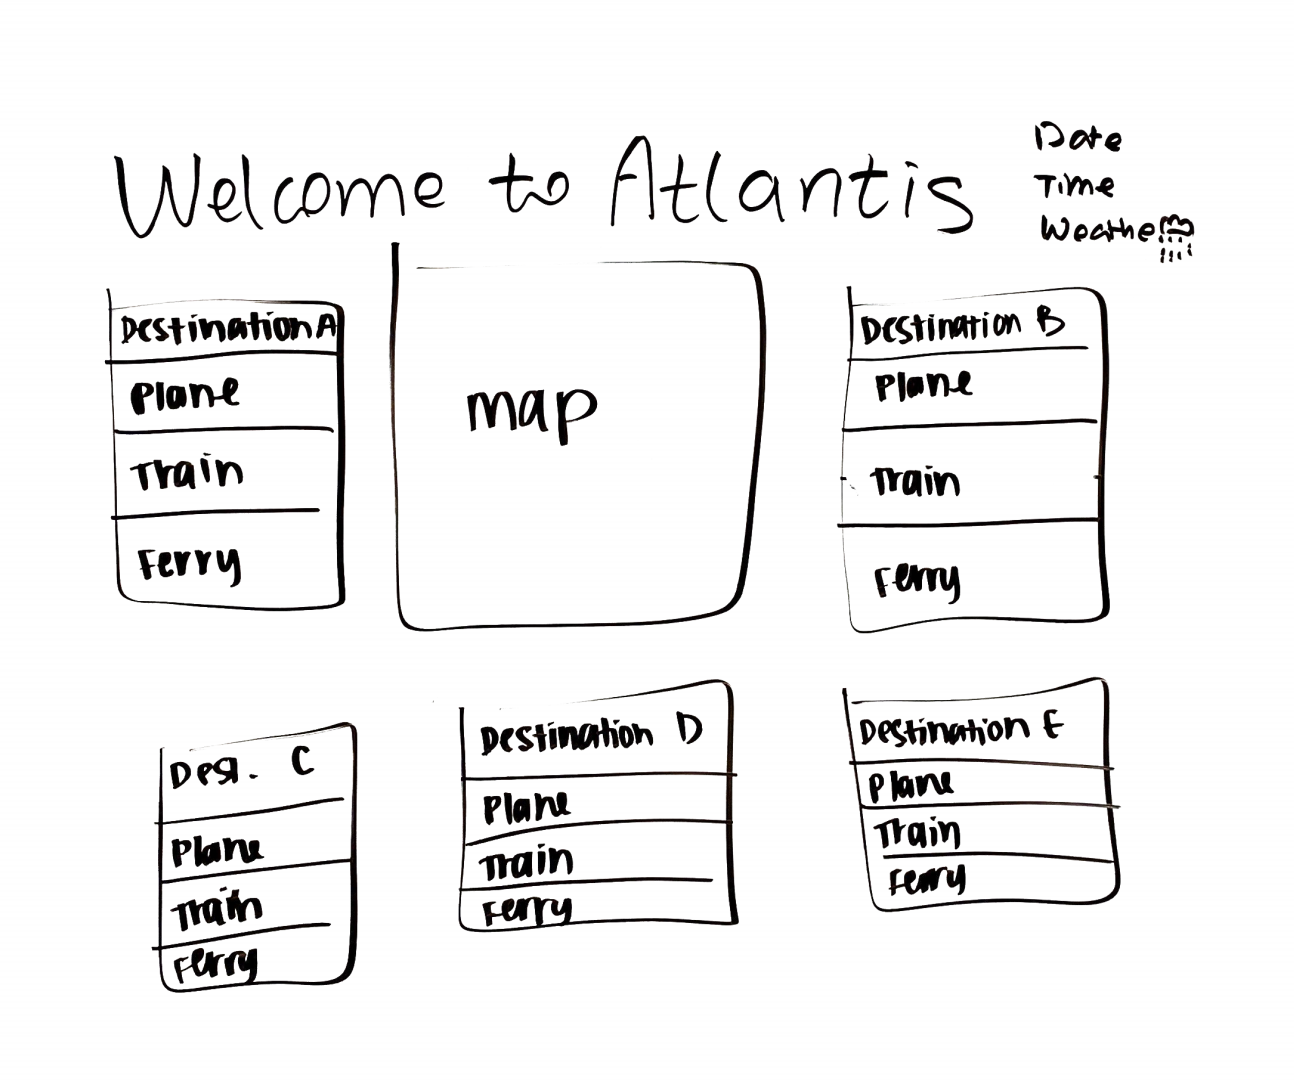 Welcome to Atlantis
Date
Time
Weather
Destination A
Plane
Train
Ferry
map
Destination B
Plane
Train
Ferry
Dest. C
Plane
Train
Ferry
Destination D
Plane
Train
Ferry
Destination E
Plane
Train
Ferry